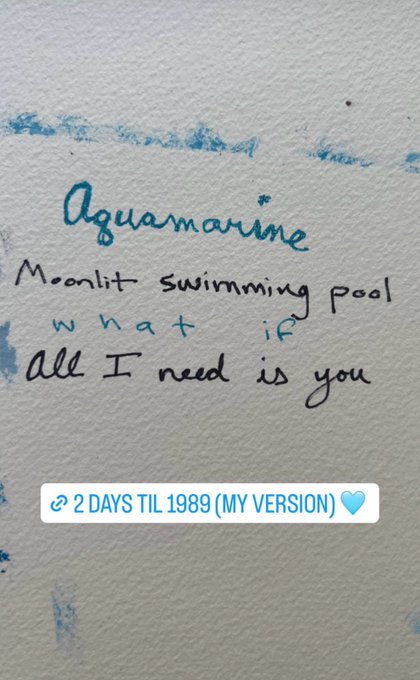 Aquamarine
Moonlit swimming pool
what if
All I need is you
2 DAYS TIL 1989 (MY VERSION) 🩵